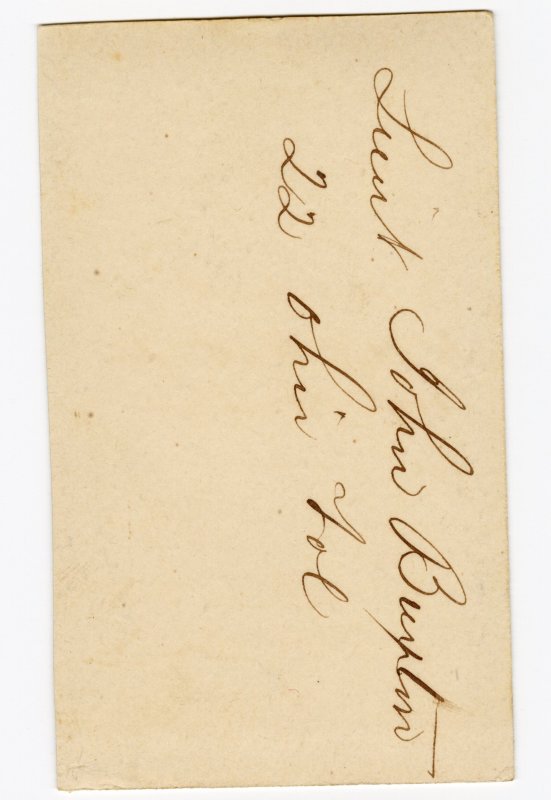 Lieut John Buxton
22 ohio Vol